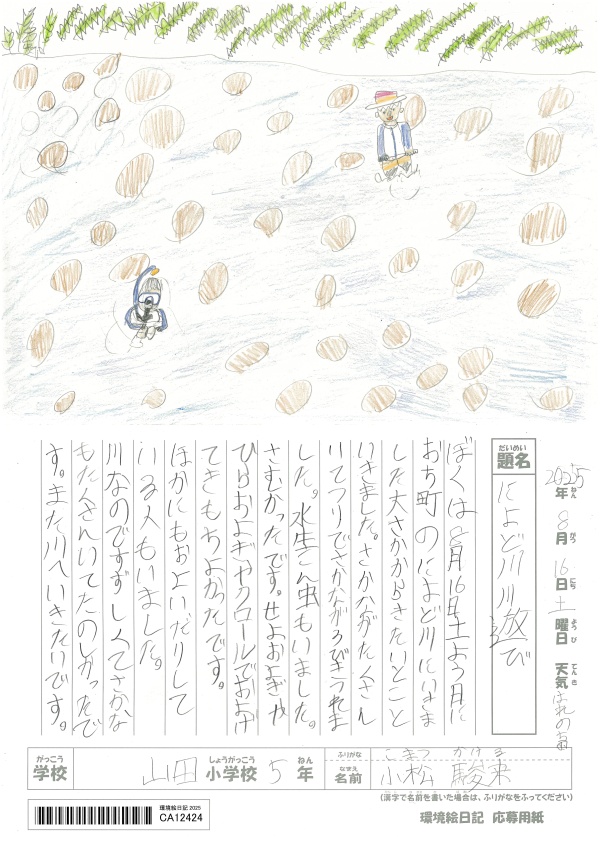 だいめい
題名
によど川川遊び
2025年 8月 16日 土曜日 天気 はれのち
ねん がつ にち ようび てんき
ぼくは8月16日土よう日に
おち町のによど川にいきま
した大さかからきたいとこと
いきました。さかながたくさん
いてつりでさかなが3びきつれま
した。水生こん虫もいました。
さむかったです。せおよぎや
ひらおよぎやクロールでおよげ
てきもちよかったです。
ほかにもおよいだりして
いる人もいました。
川なのですずしくてさかな
もたくさんいてたのしかったで
す。また川へいきたいです。
がっこう しょうがっこう ねん ふりがな こまつ かける
学校 山田 小学校 5年 なまえ 名前 小松 駿来
(漢字で名前を書いた場合は、ふりがなをふってください)
環境絵日記 応募用紙
環境絵日記 2025
CA12424